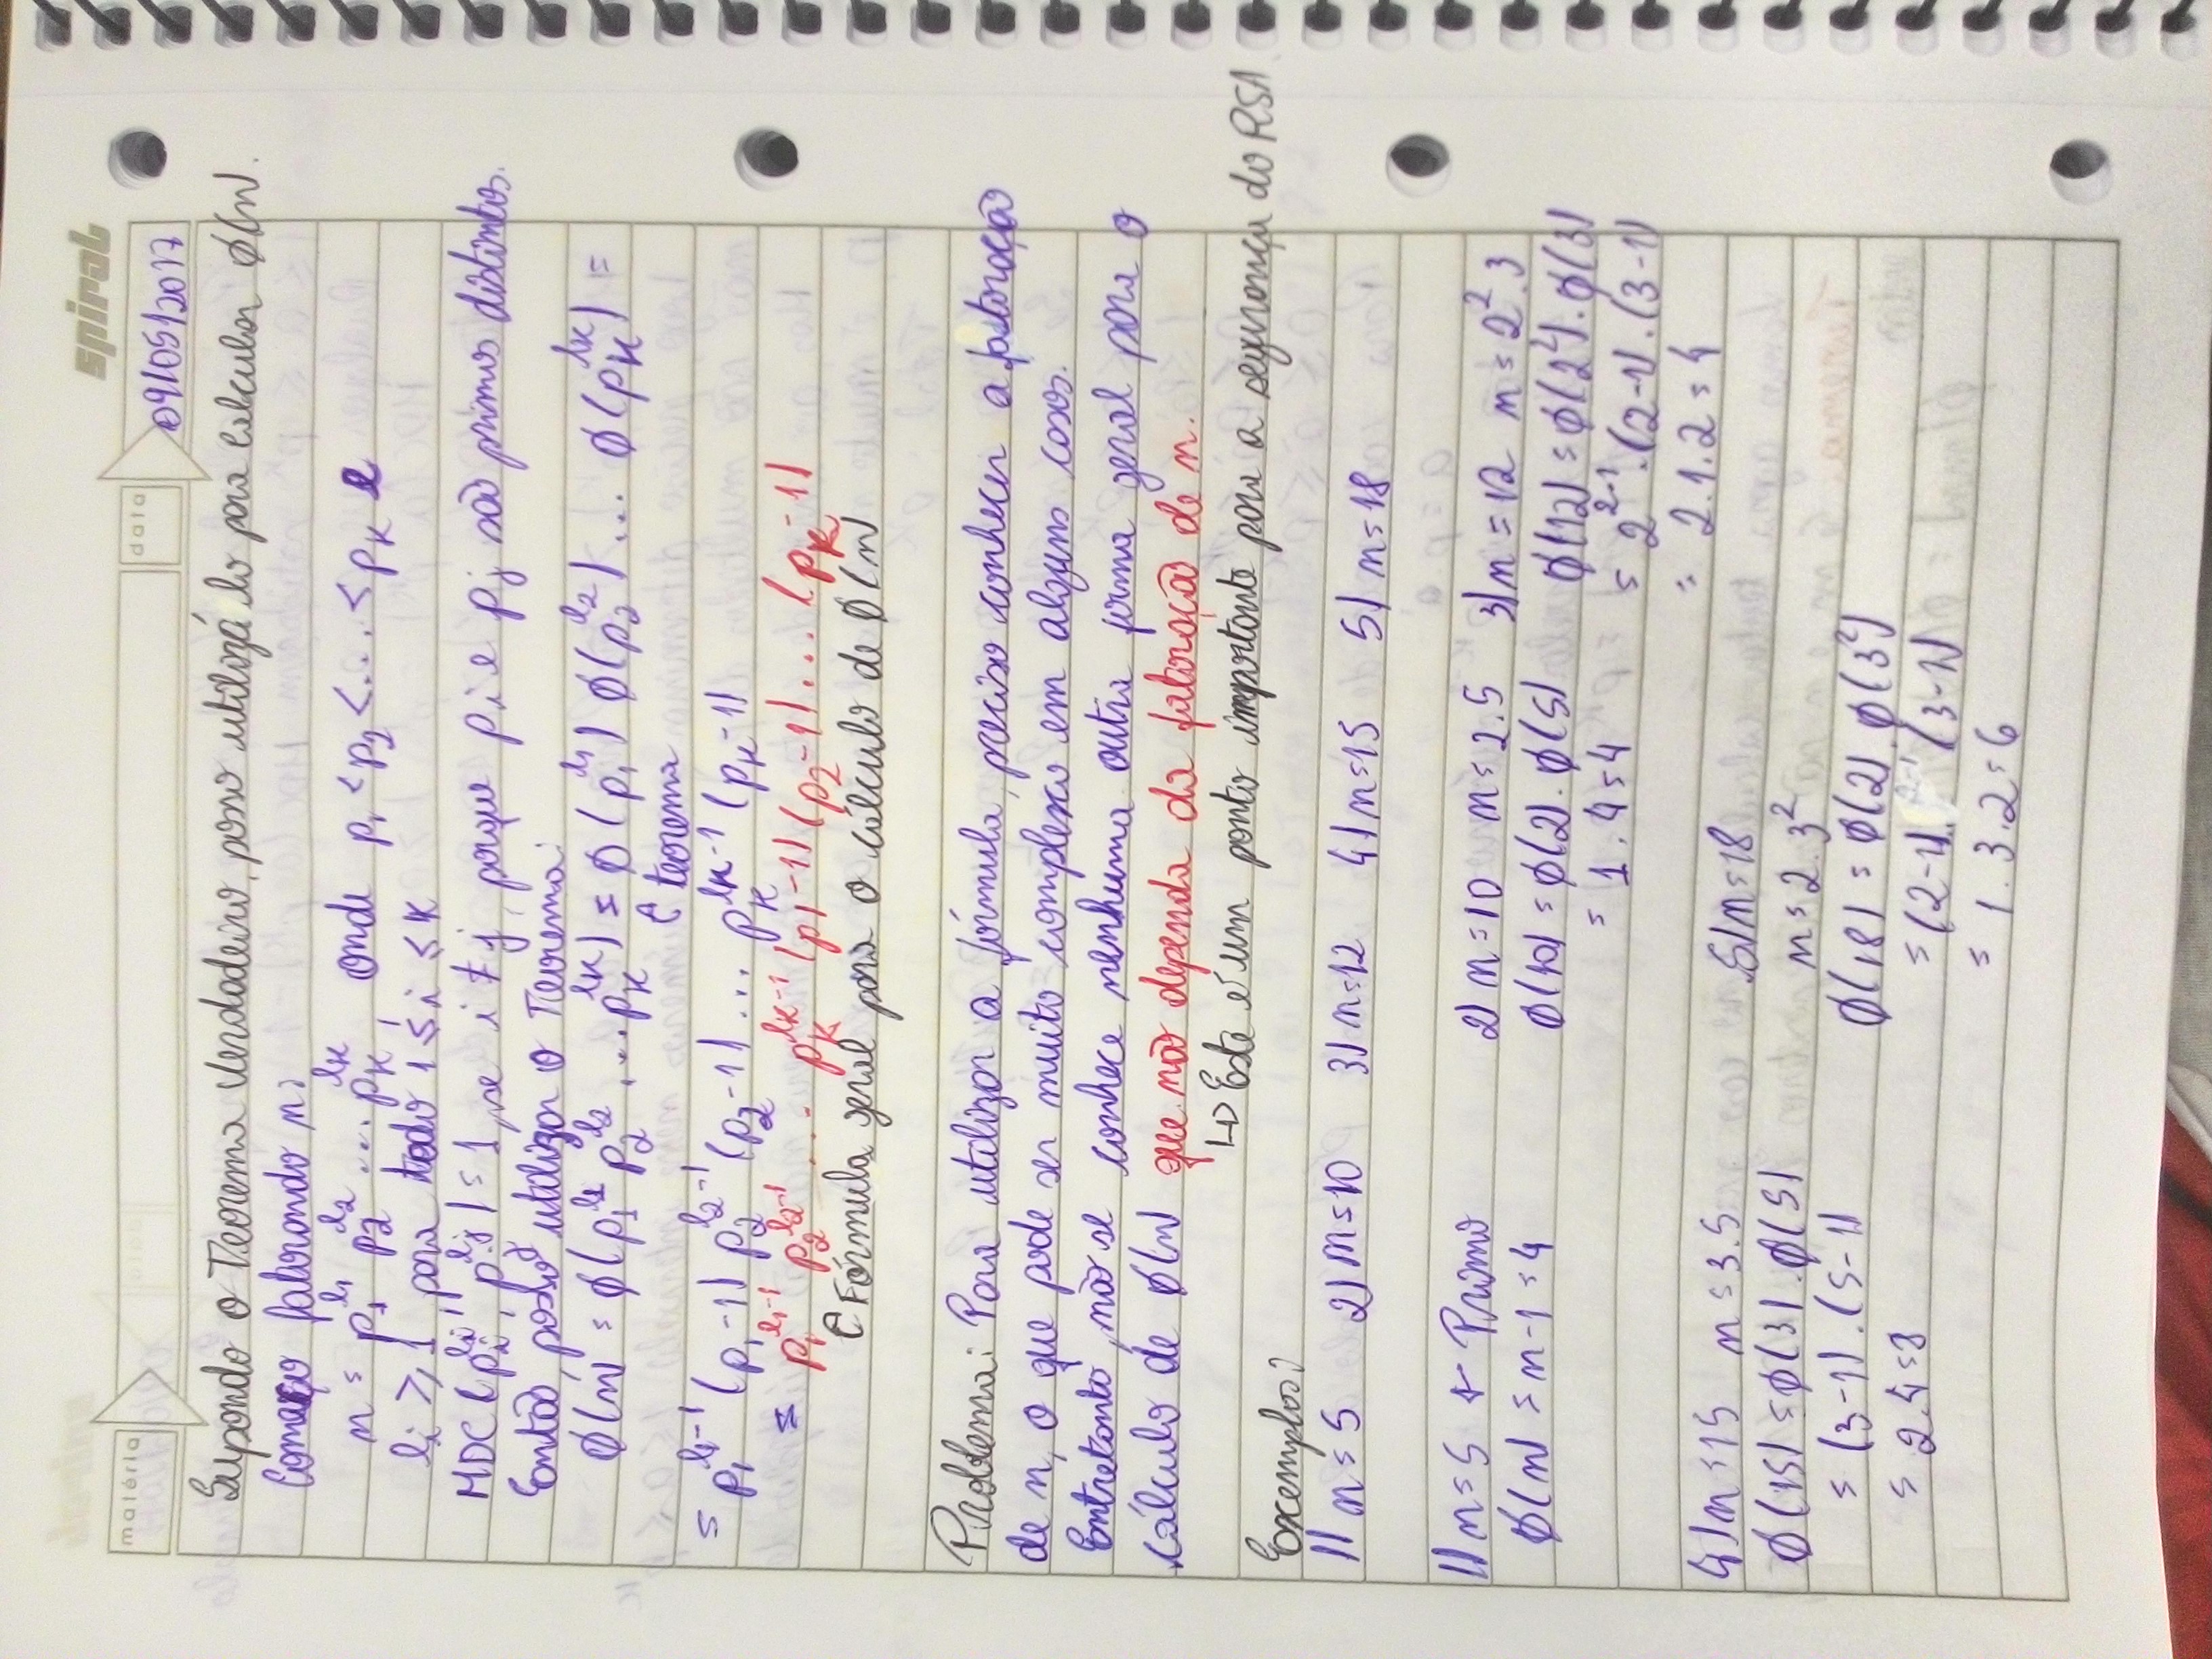 spiral
matéria data 09/05/2017
Supondo o Teorema Verdadeiro, posso utilizá-lo para calcular φ(n).
Começo fatorando n:
n = p₁^e₁ p₂^e₂ ... pₖ^eₖ, onde p₁ < p₂ < ... < pₖ e
eᵢ ≥ 1, para todo 1 ≤ i ≤ k
MDC (pᵢ^eᵢ, pⱼ^eⱼ) = 1, se i ≠ j, porque pᵢ e pⱼ são primos distintos.
Então, posso utilizar o Teorema:
φ(n) = φ(p₁^e₁ p₂^e₂ ... pₖ^eₖ) = φ(p₁^e₁) φ(p₂^e₂) ... φ(pₖ^eₖ) =
teorema
= p₁^(e₁-1) (p₁-1) p₂^(e₂-1) (p₂-1) ... pₖ^(eₖ-1) (pₖ-1)
= p₁^(e₁-1) p₂^(e₂-1) ... pₖ^(eₖ-1) (p₁-1) (p₂-1) ... (pₖ-1)
Fórmula geral para o cálculo de φ(n)
Problema: Para utilizar a fórmula, preciso conhecer a fatoração
de n, o que pode ser muito complexo em alguns casos.
Entretanto, não se conhece nenhuma outra forma geral para o
cálculo de φ(n) que não dependa da fatoração de n.
↳ Este é um ponto importante para a segurança do RSA.
Exemplos:
1) n = 5 2) n = 10 3) n = 12 4) n = 15 5) n = 18
1) n = 5 ← Primo
φ(n) = n-1 = 4
2) n = 10 n = 2.5
φ(10) = φ(2) . φ(5)
= 1 . 4 = 4
3) n = 12 n = 2².3
φ(12) = φ(2²) . φ(3)
= 2^(2-1) . (2-1) . (3-1)
= 2.1.2 = 4
4) n = 15 n = 3.5
φ(15) = φ(3) . φ(5)
= (3-1) . (5-1)
= 2.4 = 8
5) n = 18
n = 2.3²
φ(18) = φ(2) . φ(3²)
= (2-1). ^(2-1) (3-1)
= 1.3.2 = 6